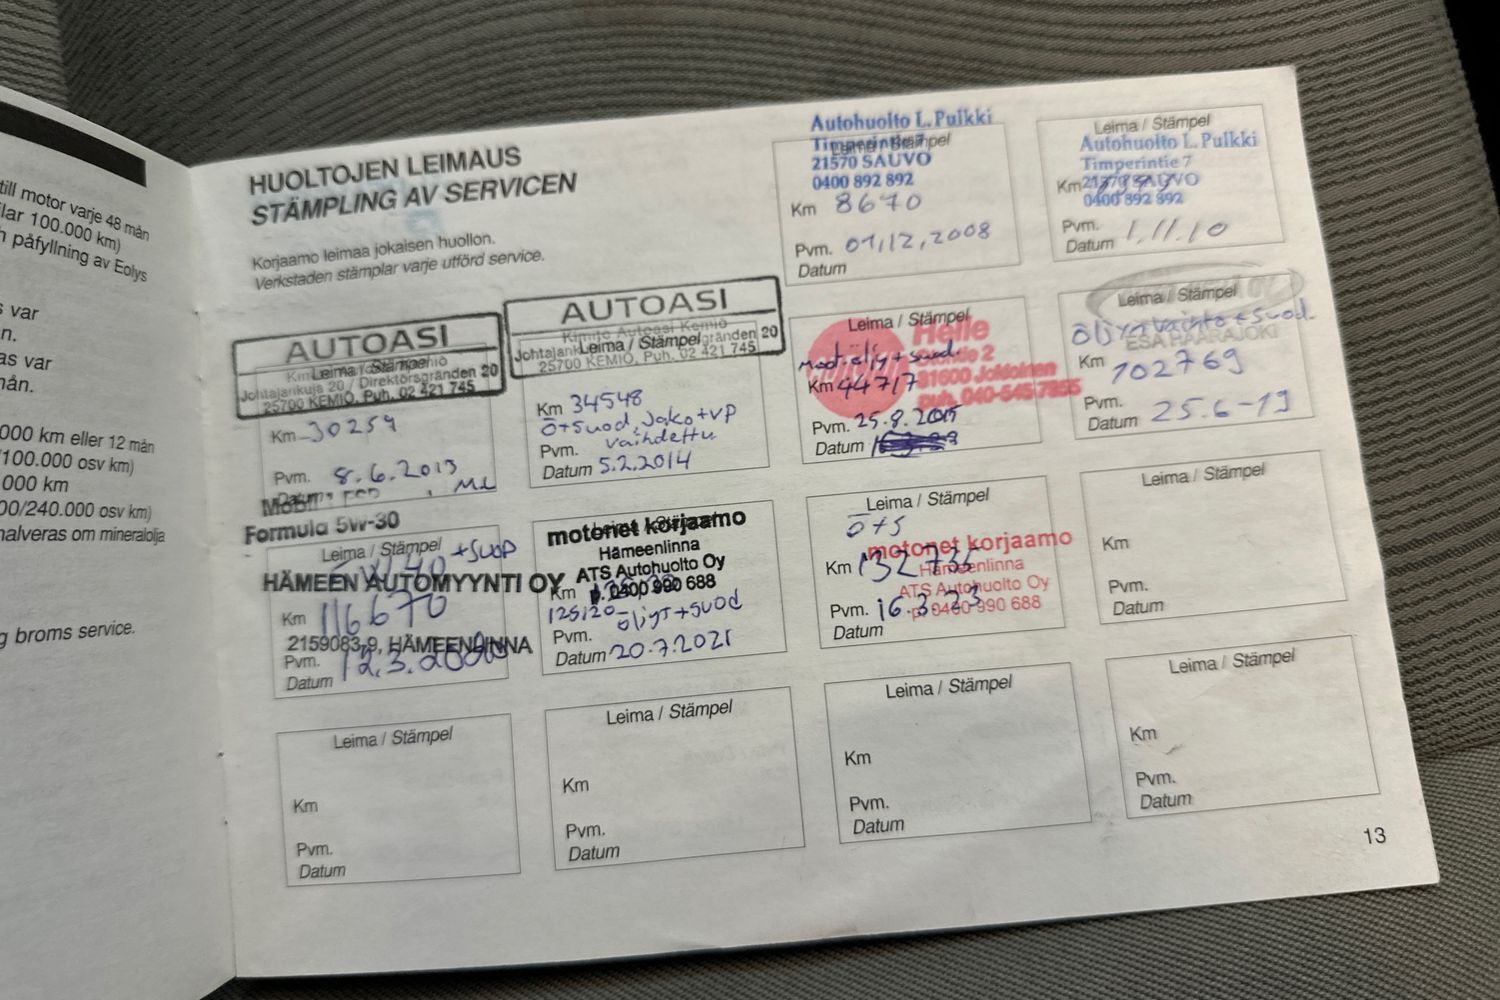 till motor varje 48 mån
lar 100.000 km)
påfyllning av Eolys
var
n.
as var
mån.
000 km eller 12 mån
/100.000 osv km)
.000 km
00/240.000 osv km)
nalveras om mineralolja
g broms service.
HUOLTOJEN LEIMAUS
STÄMPLING AV SERVICEN
Korjaamo leimaa jokaisen huollon.
Verkstaden stämplar varje utförd service.
Autohuolto L. Pulkki
Leima / Stämpel
Timperintie 7
21570 SAUVO
0400 892 892
Km 8670
Pvm. 01,12,2008
Datum
Leima / Stämpel
Autohuolto L. Pulkki
Timperintie 7
21570 SAUVO
Km
0400 892 892
Pvm. 1.11.10
Datum
AUTOASI
Leima / Stämpel
Johtajankuja 20 / Direktörsgränden 20
25700 KEMIÖ, Puh. 02 421 745
Km 30259
Pvm. 8.6.2013
Datum
Mobil
Formula 5W-30
AUTOASI
Kimito Autoasi Kemiö
Leima / Stämpel
25700 KEMIÖ, Puh. 02 421 745
Km 34548
ö+suod, Jako+vp
vaihdettu
Pvm.
Datum 5.2.2014
Leima / Stämpel
Helle
moot.öljy+suod.
31600 Jokioinen
Km 44717
puh. 040-545
Pvm. 25.8.2015
Datum
Leima / Stämpel
öljynvaihto + suod.
ESA HAARAJOKI
Km 102769
Pvm. 25.6-19
Datum
Leima / Stämpel
+suod
HÄMEEN AUTOMYYNTI OY
Km 116670
2159083-9, HÄMEENLINNA
Pvm. 12.3.2020
Datum
motonet korjaamo
Hämeenlinna
ATS Autohuolto Oy
Km p. 0400 990 688
öljyt+suod
Pvm.
Datum 20.7.2021
Leima / Stämpel
ö+s
motonet korjaamo
Hämeenlinna
Km 132735
ATS Autohuolto Oy
p. 0400 990 688
Pvm. 16.3.23
Datum
Leima / Stämpel
Km
Pvm.
Datum
Leima / Stämpel
Km
Pvm.
Datum
Leima / Stämpel
Km
Pvm.
Datum
Leima / Stämpel
Km
Pvm.
Datum
Leima / Stämpel
Km
Pvm.
Datum
13